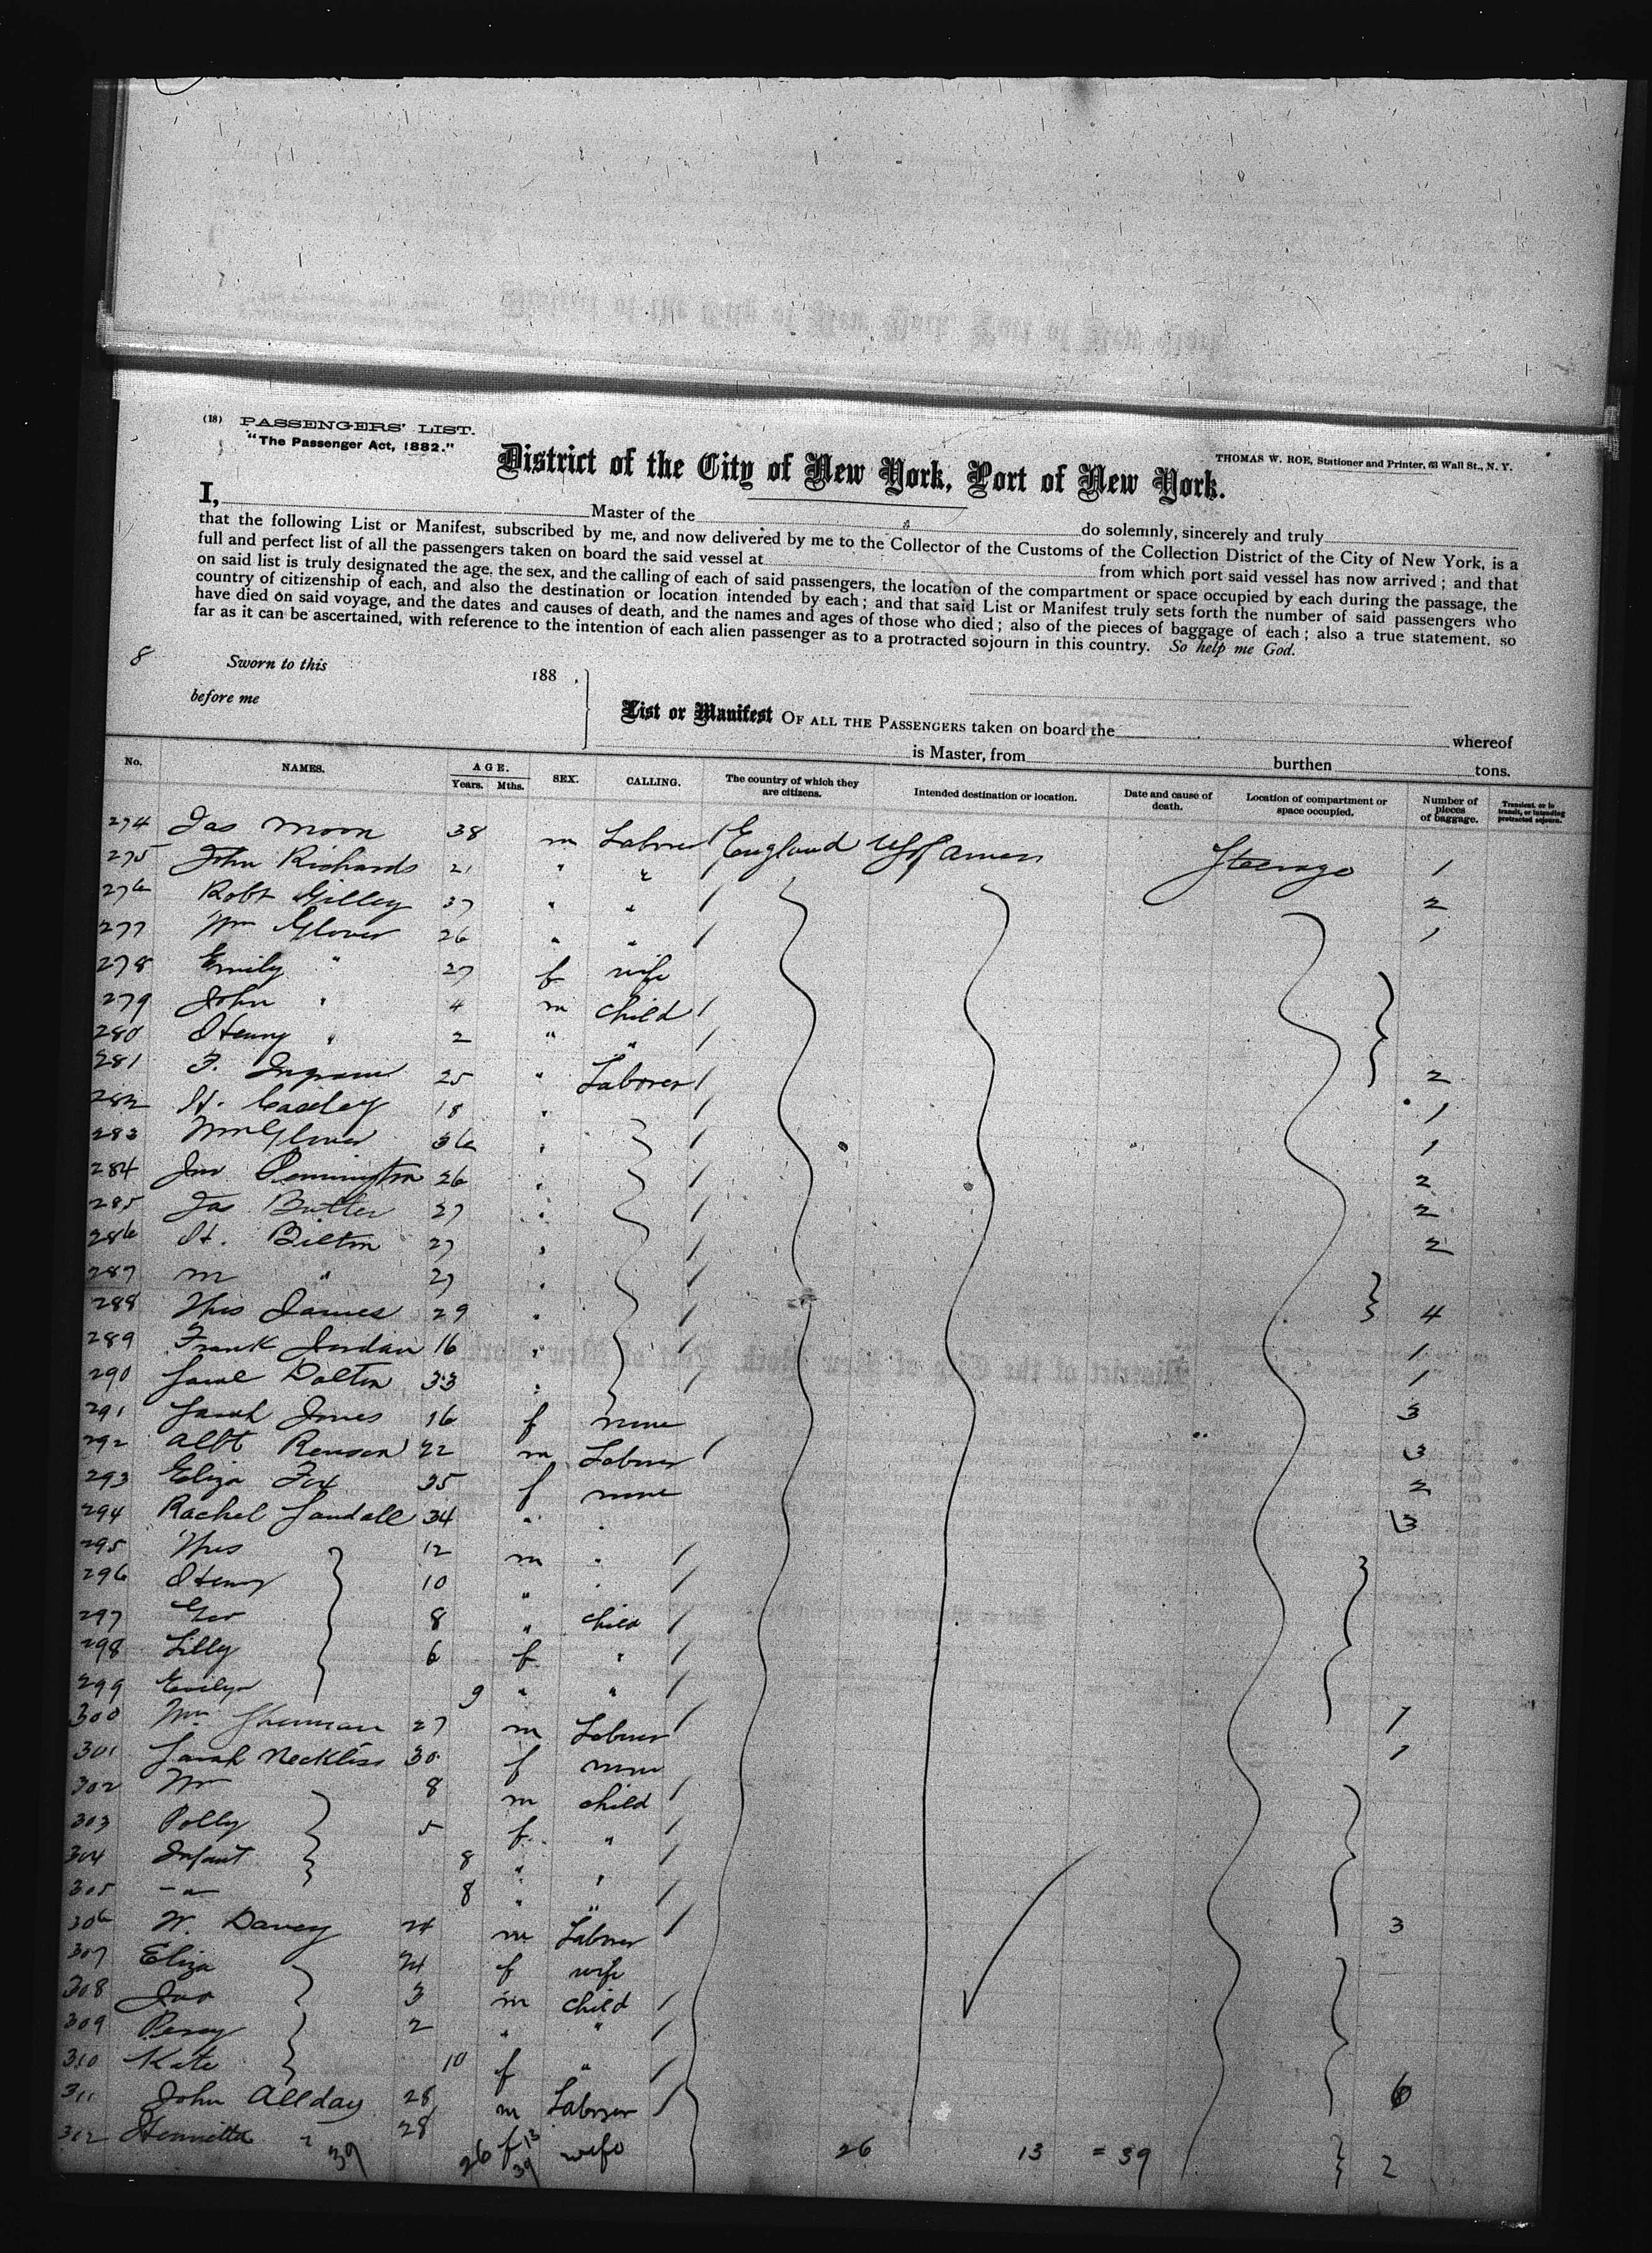 (18) PASSENGERS' LIST.
"The Passenger Act, 1882."
THOMAS W. ROE, Stationer and Printer, 63 Wall St., N. Y.
District of the City of New York, Port of New York.
I, Master of the do solemnly, sincerely and truly
that the following List or Manifest, subscribed by me, and now delivered by me to the Collector of the Customs of the Collection District of the City of New York, is a
full and perfect list of all the passengers taken on board the said vessel at from which port said vessel has now arrived; and that
on said list is truly designated the age, the sex, and the calling of each of said passengers, the location of the compartment or space occupied by each during the passage, the
country of citizenship of each, and also the destination or location intended by each; and that said List or Manifest truly sets forth the number of said passengers who
have died on said voyage, and the dates and causes of death, and the names and ages of those who died; also of the pieces of baggage of each; also a true statement, so
far as it can be ascertained, with reference to the intention of each alien passenger as to a protracted sojourn in this country. So help me God.
8 Sworn to this 188 .
before me
List or Manifest OF ALL THE PASSENGERS taken on board the whereof
is Master, from burthen tons.
No. NAMES. AGE. Years. Mths. SEX. CALLING. The country of which they are citizens. Intended destination or location. Date and cause of death. Location of compartment or space occupied. Number of pieces of baggage. Transient, or in transit, or intending protracted sojourn.
274 Jas Moon 38 m Laborer England US Steerage 1
275 John Richards 21 " " 2
276 Robt Gilley 37 " " 1
277 Wm Glover 26 " "
278 Emily " 27 f wife
279 John " 4 m child
280 Henry " 2 " " 2
281 F. Ingram 25 " Laborer 1
282 H. 18 " 1
283 Wm Glover 36 " 2
284 Jno Pennington 26 " 2
285 Jas Butler 27 " 2
286 H. Bilton 27 "
287 M " 27 " 4
288 Thos James 29 " 1
289 Frank Jordan 16 " 1
290 Saml Dalton 33 " 3
291 Sarah Jones 16 f none 3
292 Albt 22 m Laborer 2
293 Eliza Fox 35 f none 3
294 Rachel Sandall 34 " "
295 Thos 12 m "
296 Henry 10 " "
297 Geo 8 " child
298 Lilly 6 f "
299 Evelyn 9 " " 7
300 Wm Sherman 27 m Laborer 1
301 Sarah Neckliss 30 f none
302 Wm 8 m child
303 Polly 5 f "
304 Infant 8 " "
305 - " - 8 " " 3
306 W. Davey 24 m Laborer
307 Eliza 24 f wife
308 Jno 3 m child
309 Percy 2 " "
310 Kate 10 f " 6
311 John Allday 28 m Laborer
312 Henrietta " 28 f wife 2
39 26 13 39 26 13 = 39